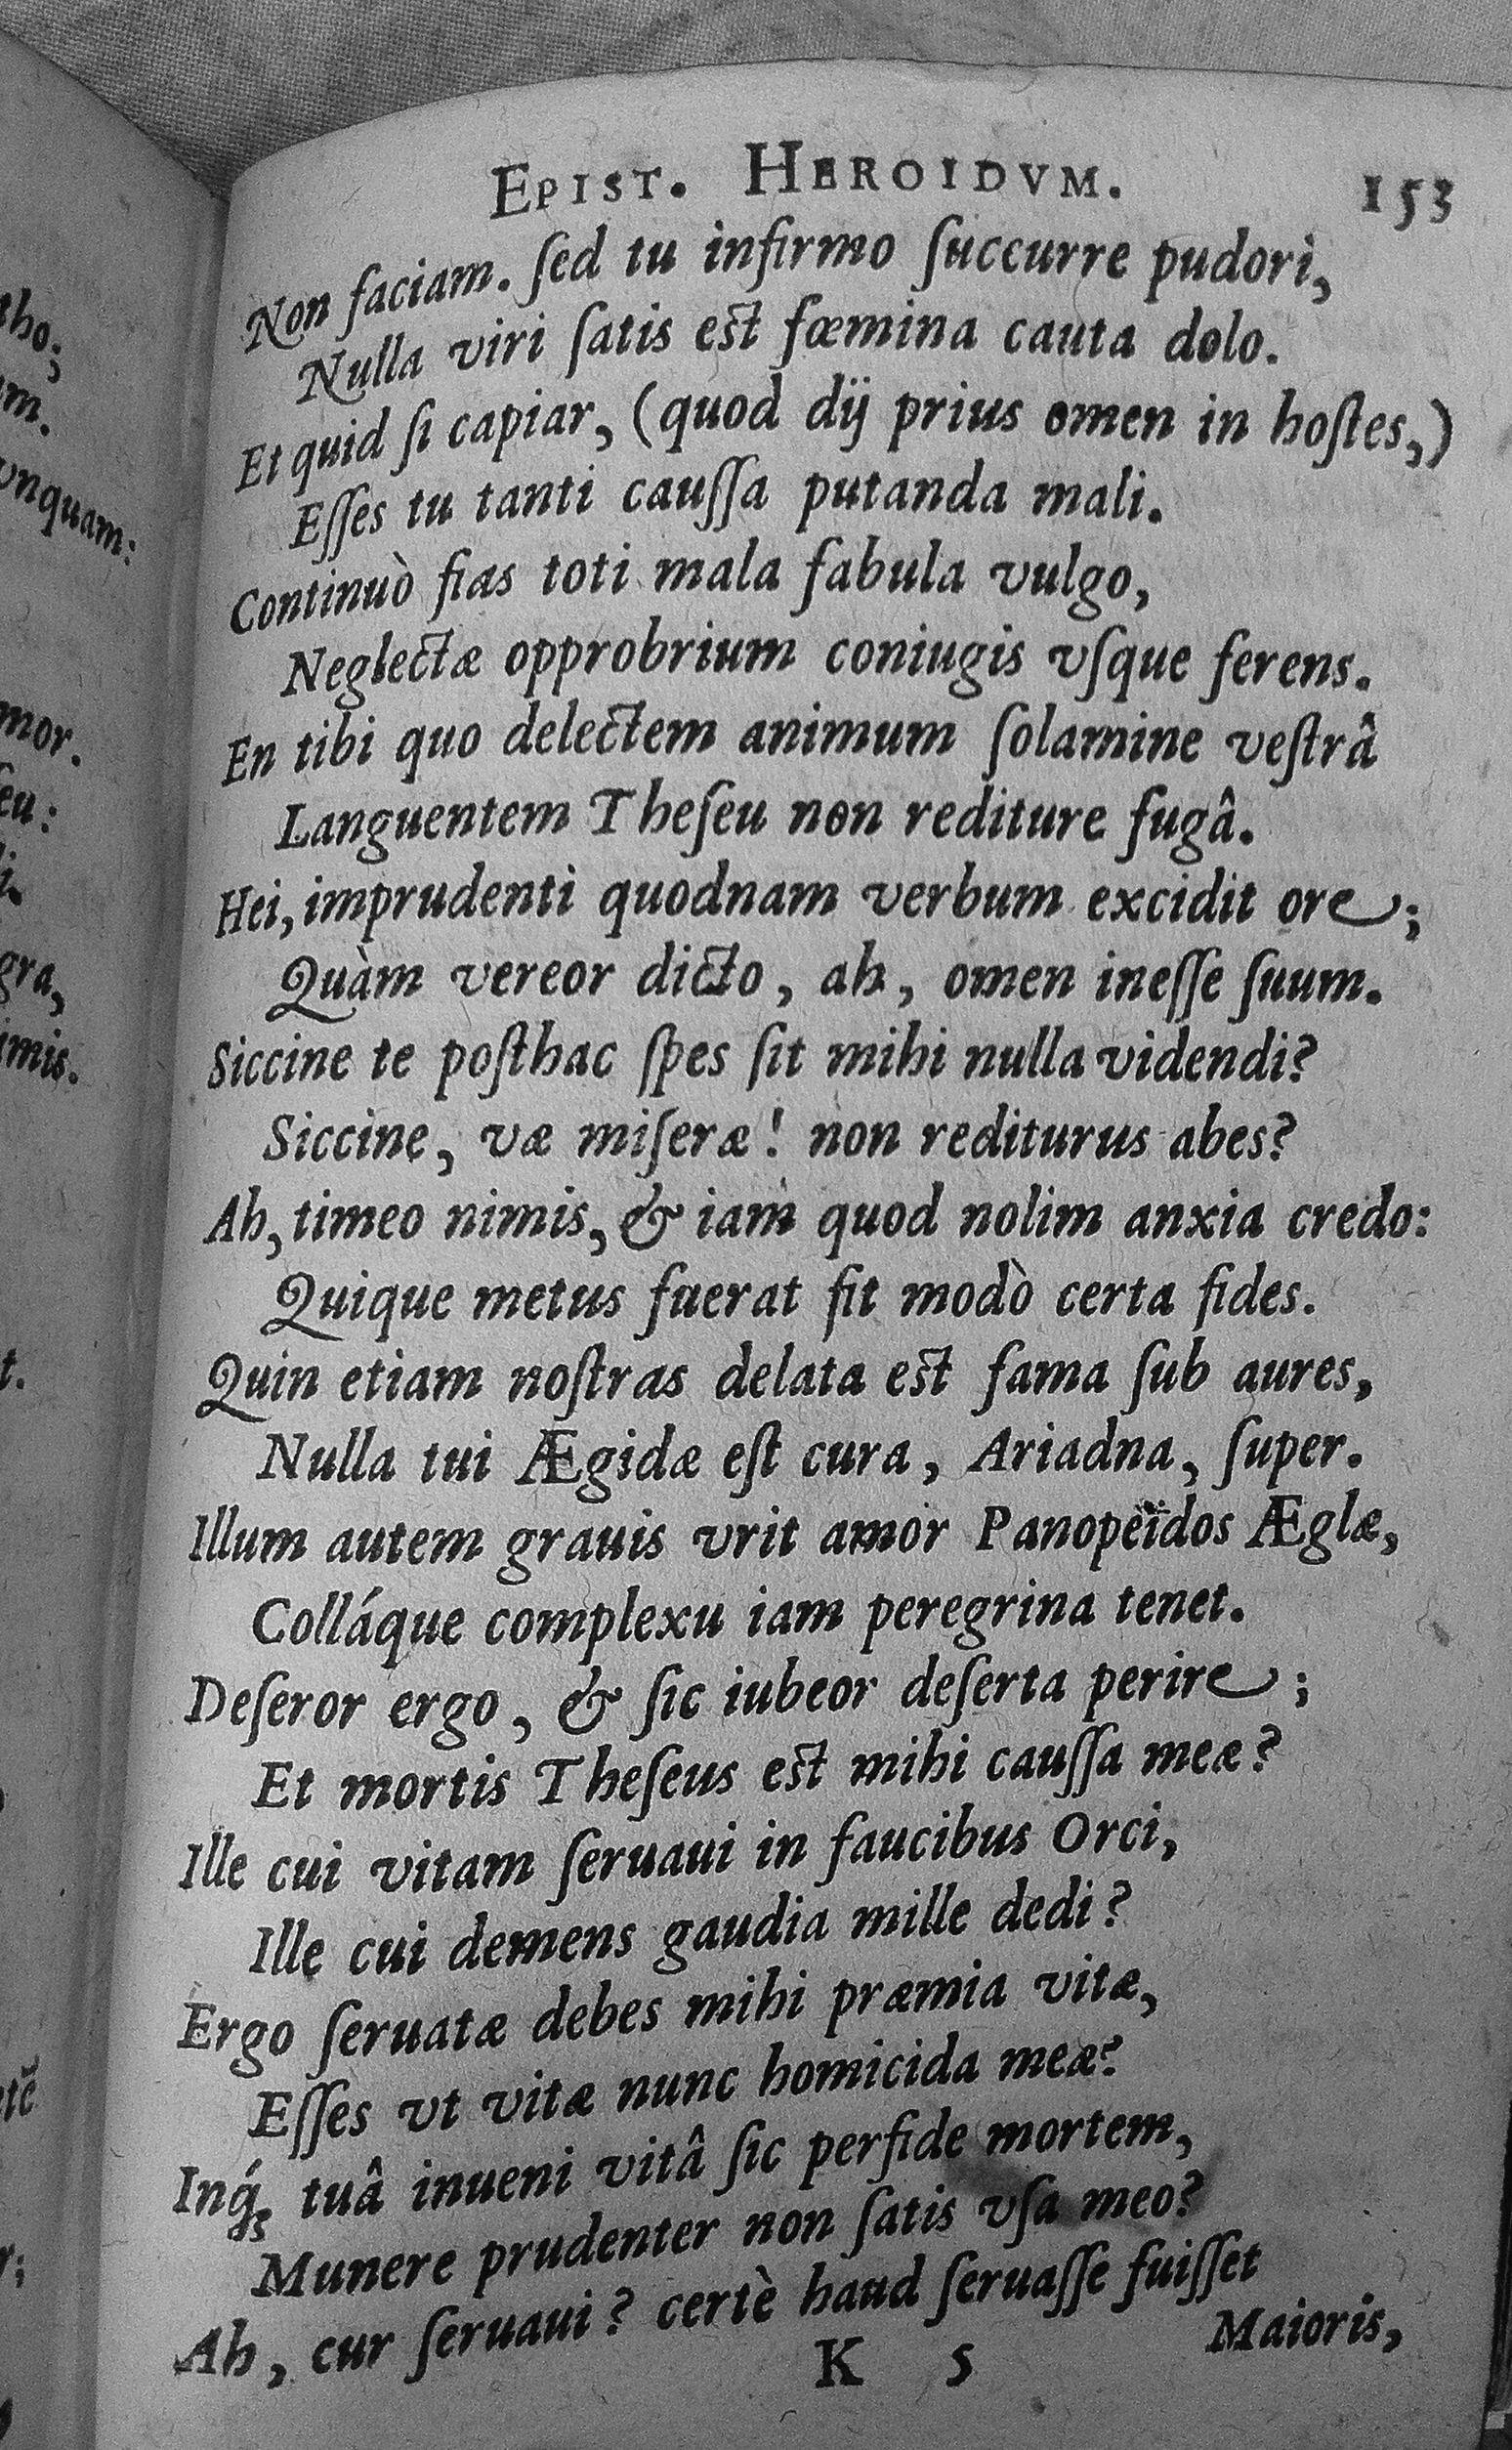 EPIST. HEROIDVM. 153
Non faciam. ſed tu infirmo ſuccurre pudori,
Nulla viri ſatis eſt fœmina cauta dolo.
Et quid ſi capiar, (quod dij prius omen in hoſtes,)
Eſſes tu tanti cauſſa putanda mali.
Continuò fias toti mala fabula vulgo,
Neglectæ opprobrium coniugis vſque ferens.
En tibi quo delectem animum ſolamine veſtrâ
Languentem Theſeu non rediture fugâ.
Hei, imprudenti quodnam verbum excidit ore;
Quàm vereor dicto, ah, omen ineſſe ſuum.
Siccine te poſthac ſpes ſit mihi nulla videndi?
Siccine, væ miſeræ! non rediturus abes?
Ah, timeo nimis, & iam quod nolim anxia credo:
Quique metus fuerat fit modò certa fides.
Quin etiam noſtras delata eſt fama ſub aures,
Nulla tui Ægidæ eſt cura, Ariadna, ſuper.
Illum autem grauis vrit amor Panopëidos Æglæ,
Colláque complexu iam peregrina tenet.
Deſeror ergo, & ſic iubeor deſerta perire;
Et mortis Theſeus eſt mihi cauſſa meæ?
Ille cui vitam ſeruaui in faucibus Orci,
Ille cui demens gaudia mille dedi?
Ergo ſeruatæ debes mihi præmia vitæ,
Eſſes vt vitæ nunc homicida meæ?
Inq́; tuâ inueni vitâ ſic perfide mortem,
Munere prudenter non ſatis vſa meo?
Ah, cur ſeruaui? certè haud ſeruaſſe fuiſſet
K 5 Maioris,